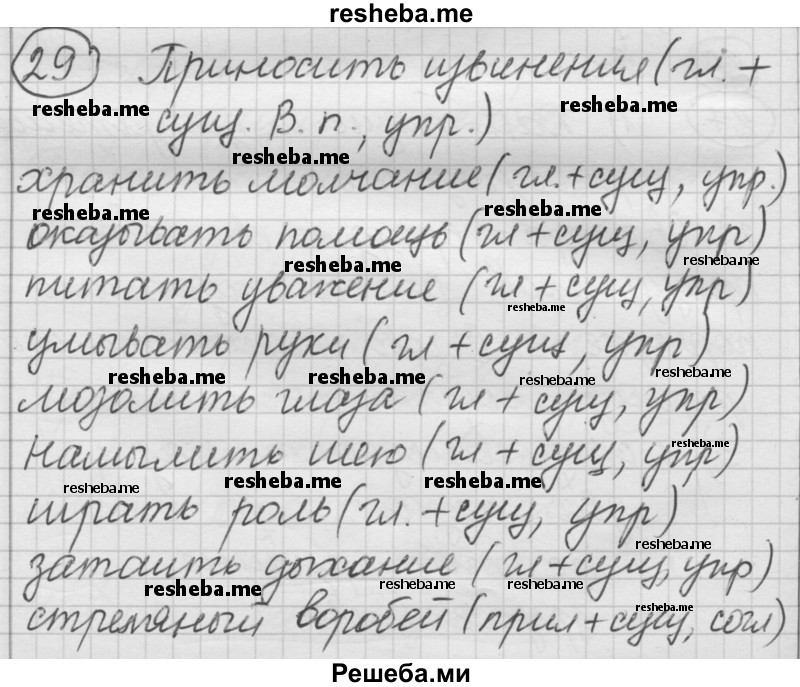 resheba.me
29 Приносить извинения (гл. +
resheba.me resheba.me
сущ. В. п., упр.)
resheba.me
хранить молчание (гл. + сущ, упр.)
resheba.me resheba.me
оказывать помощь (гл + сущ, упр)
resheba.me resheba.me
питать уважение (гл + сущ, упр)
resheba.me
умывать руки (гл + сущ, упр)
resheba.me resheba.me resheba.me resheba.me
мозолить глаза (гл + сущ, упр)
намылить шею (гл + сущ, упр)
resheba.me
resheba.me resheba.me resheba.me
играть роль (гл. + сущ, упр)
resheba.me
затаить дыхание (гл + сущ, упр)
resheba.me resheba.me resheba.me
стремяный воробей (прил + сущ, согл)
resheba.me
Решеба.ми